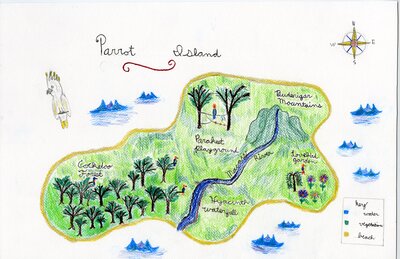 Parrot Island
N
W E
S
Budgerigar
Mountains
Parakeet
Playground
Cockatoo
Forest
River
Lovebird
garden
Hyacinth
waterfall
Key
water
vegetation
beach